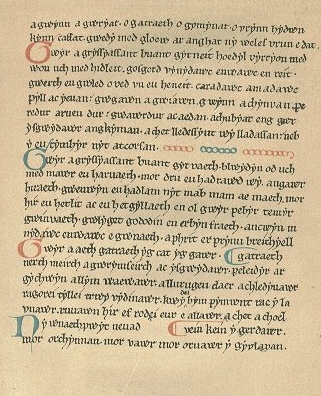 a gwynn a gwryat. o gatraeth o gymynat. o vrynn hydwn
kynn caffat. gwedy med gloew ar anghat ny weles vrun e dat.
Gwyr a gryssyassant buant gytneit hoedyl vyrryon medwon
uch med hidleit. gosgord vynydawc enwawc en reit.
gwerth eu gwled o ved vu eu heneit. caradawc a madawc
pyll ac yeuan. gwgawn a gwiawn. gwynn a chynvan. pe
redur arveu dur. gwawrdur ac aedan. achubyat eng gawr
ysgwydawr angkyman. a chet lledessynt wy lladassan. neb
y eu tymhyr nyt atcorsan.
Gwyr a gryssyassant buant gyt vaeth. blwydyn od uch
med mawr eu haruaeth. mor dru eu hadrawd wy. angawr
hiraeth. gwenwyn eu hadlam nyt mab mam ae maeth. mor
hir eu hetlit ac eu hetgyllaeth en ol gwyr pebyr temyr
gwinvaeth. gwlyget gododin en erbyn fraeth. ancwyn m
nydawc enwawc e gwnaeth. a phrit er prynu breithyell
Gwyr a aeth gatraeth yg cat yg gawr. gatraeth.
nerth meirch a gwrymseirch ac ysgwydawr. peleidyr ar
gychwyn a llym waewawr. a llurugeu claer a chledyuawr
ragorei tyllei trwy vydinawr. kwydei bym pymwnt rac y la
vnawr. ruuawn hir ef rodei eur e allawr. a chet a choel
vein kein y gerdawr.
Ny wnaethpwyt neuad
mor orchynnan. mor vawr mor oruawr y gyvlavan.